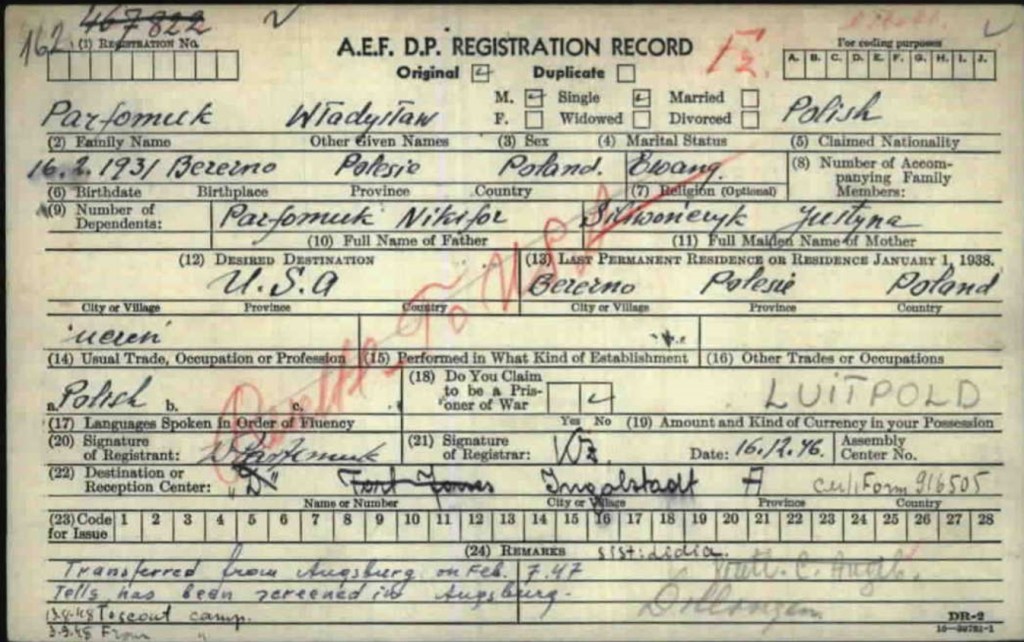 467822
162
(1) REGISTRATION No.
A.E.F. D.P. REGISTRATION RECORD
Original ☑ Duplicate ☐
For coding purposes
A. B. C. D. E. F. G. H. I. J.
M. ☑ Single ☑ Married ☐
F. ☐ Widowed ☐ Divorced ☐
Parfomuk Władysław Polish
(2) Family Name Other Given Names (3) Sex (4) Marital Status (5) Claimed Nationality
16.2.1931 Berezno Polesie Poland. Ewang.
(8) Number of Accompanying Family Members:
(6) Birthdate Birthplace Province Country (7) Religion (Optional)
(9) Number of Dependents: Parfomuk Nikifor Justyna
(10) Full Name of Father (11) Full Maiden Name of Mother
(12) DESIRED DESTINATION (13) LAST PERMANENT RESIDENCE OR RESIDENCE JANUARY 1, 1938.
U.S.A Berezno Polesie Poland
City or Village Province Country City or Village Province Country
uczeń
(14) Usual Trade, Occupation or Profession (15) Performed in What Kind of Establishment (16) Other Trades or Occupations
a. Polish b. c.
(18) Do You Claim to be a Prisoner of War
LUITPOLD
(17) Languages Spoken in Order of Fluency Yes No (19) Amount and Kind of Currency in your Possession
(20) Signature of Registrant: WParfomuk (21) Signature of Registrar: Date: 16.12.46. Assembly Center No.
(22) Destination or Reception Center: Fort Ingolstadt A Form 916505
Name or Number City or Village Province Country
(23) Code for Issue 1 2 3 4 5 6 7 8 9 10 11 12 13 14 15 16 17 18 19 20 21 22 23 24 25 26 27 28
(24) REMARKS
Transferred from Augsburg on Feb. 7.47
Tells has been screened in Augsburg.
Dillingen
To scout camp.
From "
DR-2